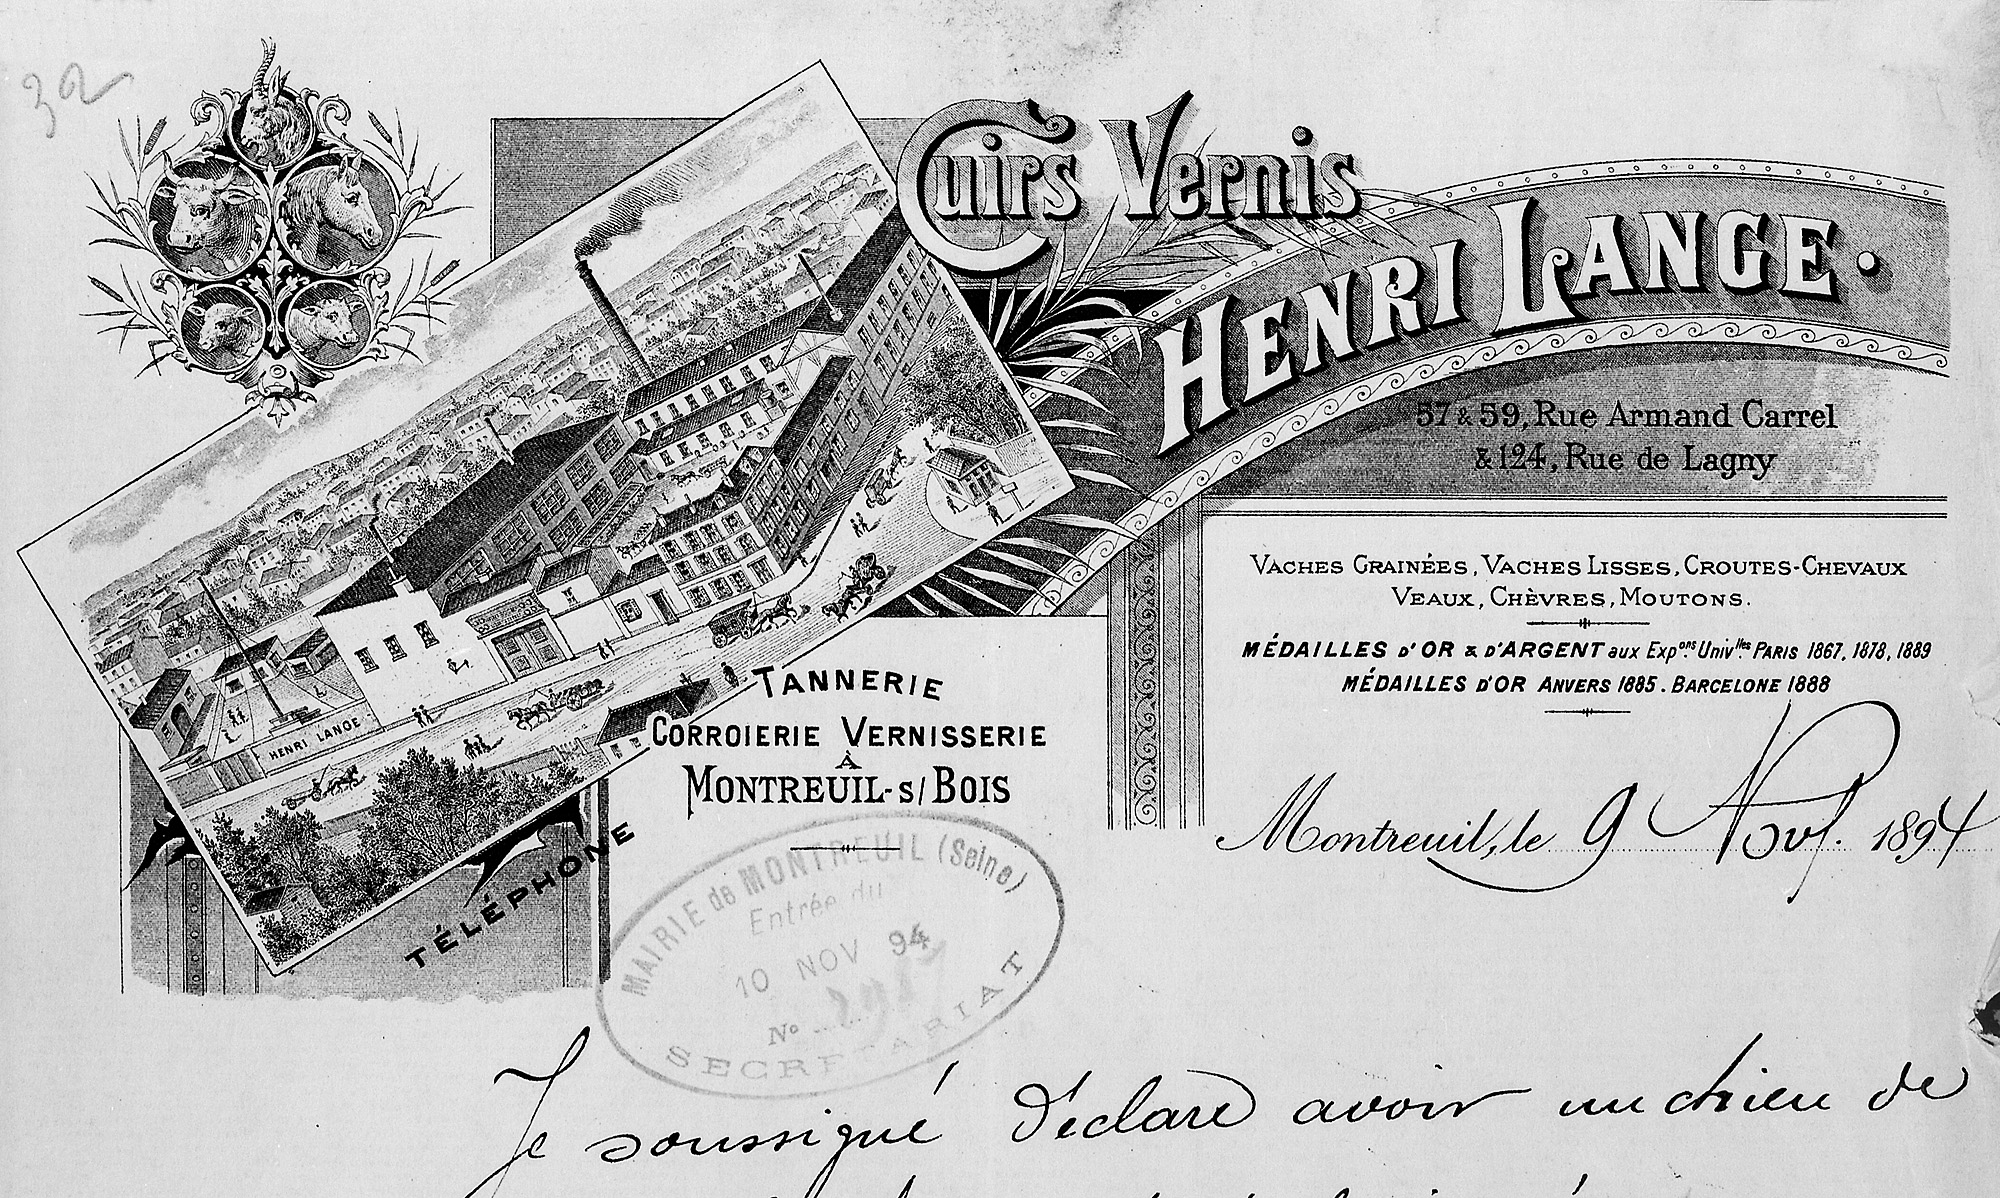 32
Cuirs Vernis
HENRI LANGE.
57 & 59, Rue Armand Carrel
& 124, Rue de Lagny
VACHES GRAINÉES, VACHES LISSES, CROUTES-CHEVAUX
VEAUX, CHÈVRES, MOUTONS.
MÉDAILLES D'OR & D'ARGENT aux Exp.ons Univ.lles PARIS 1867, 1878, 1889
MÉDAILLES D'OR ANVERS 1885. BARCELONE 1888
HENRI LANGE
TANNERIE
CORROIERIE VERNISSERIE
À
MONTREUIL-S/BOIS
TÉLÉPHONE
Montreuil, le 9 Nov. 1894
MAIRIE de MONTREUIL (Seine)
Entrée du
10 NOV 94
No
SECRETARIAT
Je soussigné déclare avoir un chien de